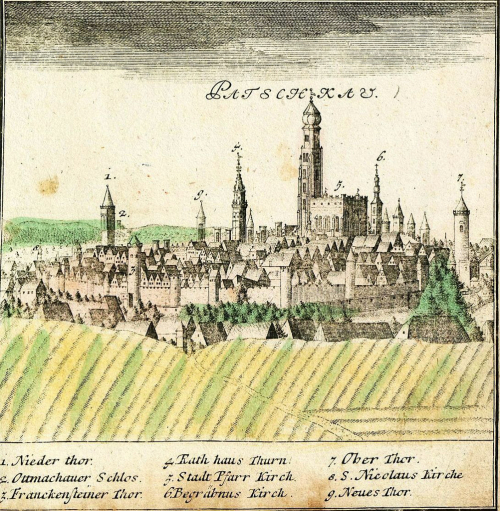 PATSCHKAU.
4.
6.
1.
7.
9.
5.
2.
3.
1. Nieder thor.
2. Ottmachauer Schlos.
3. Franckensteiner Thor.
4. Rath haus Thurn
5. Stadt Pfarr Kirch.
6. Begräbnus Kirch.
7. Ober Thor.
8. S. Nicolaus Kirche
9. Neues Thor.